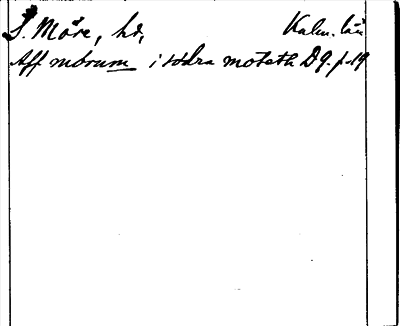 S. Möre, hd, Kalm. län
Aff mörum i södra moteth D 9. p. 19